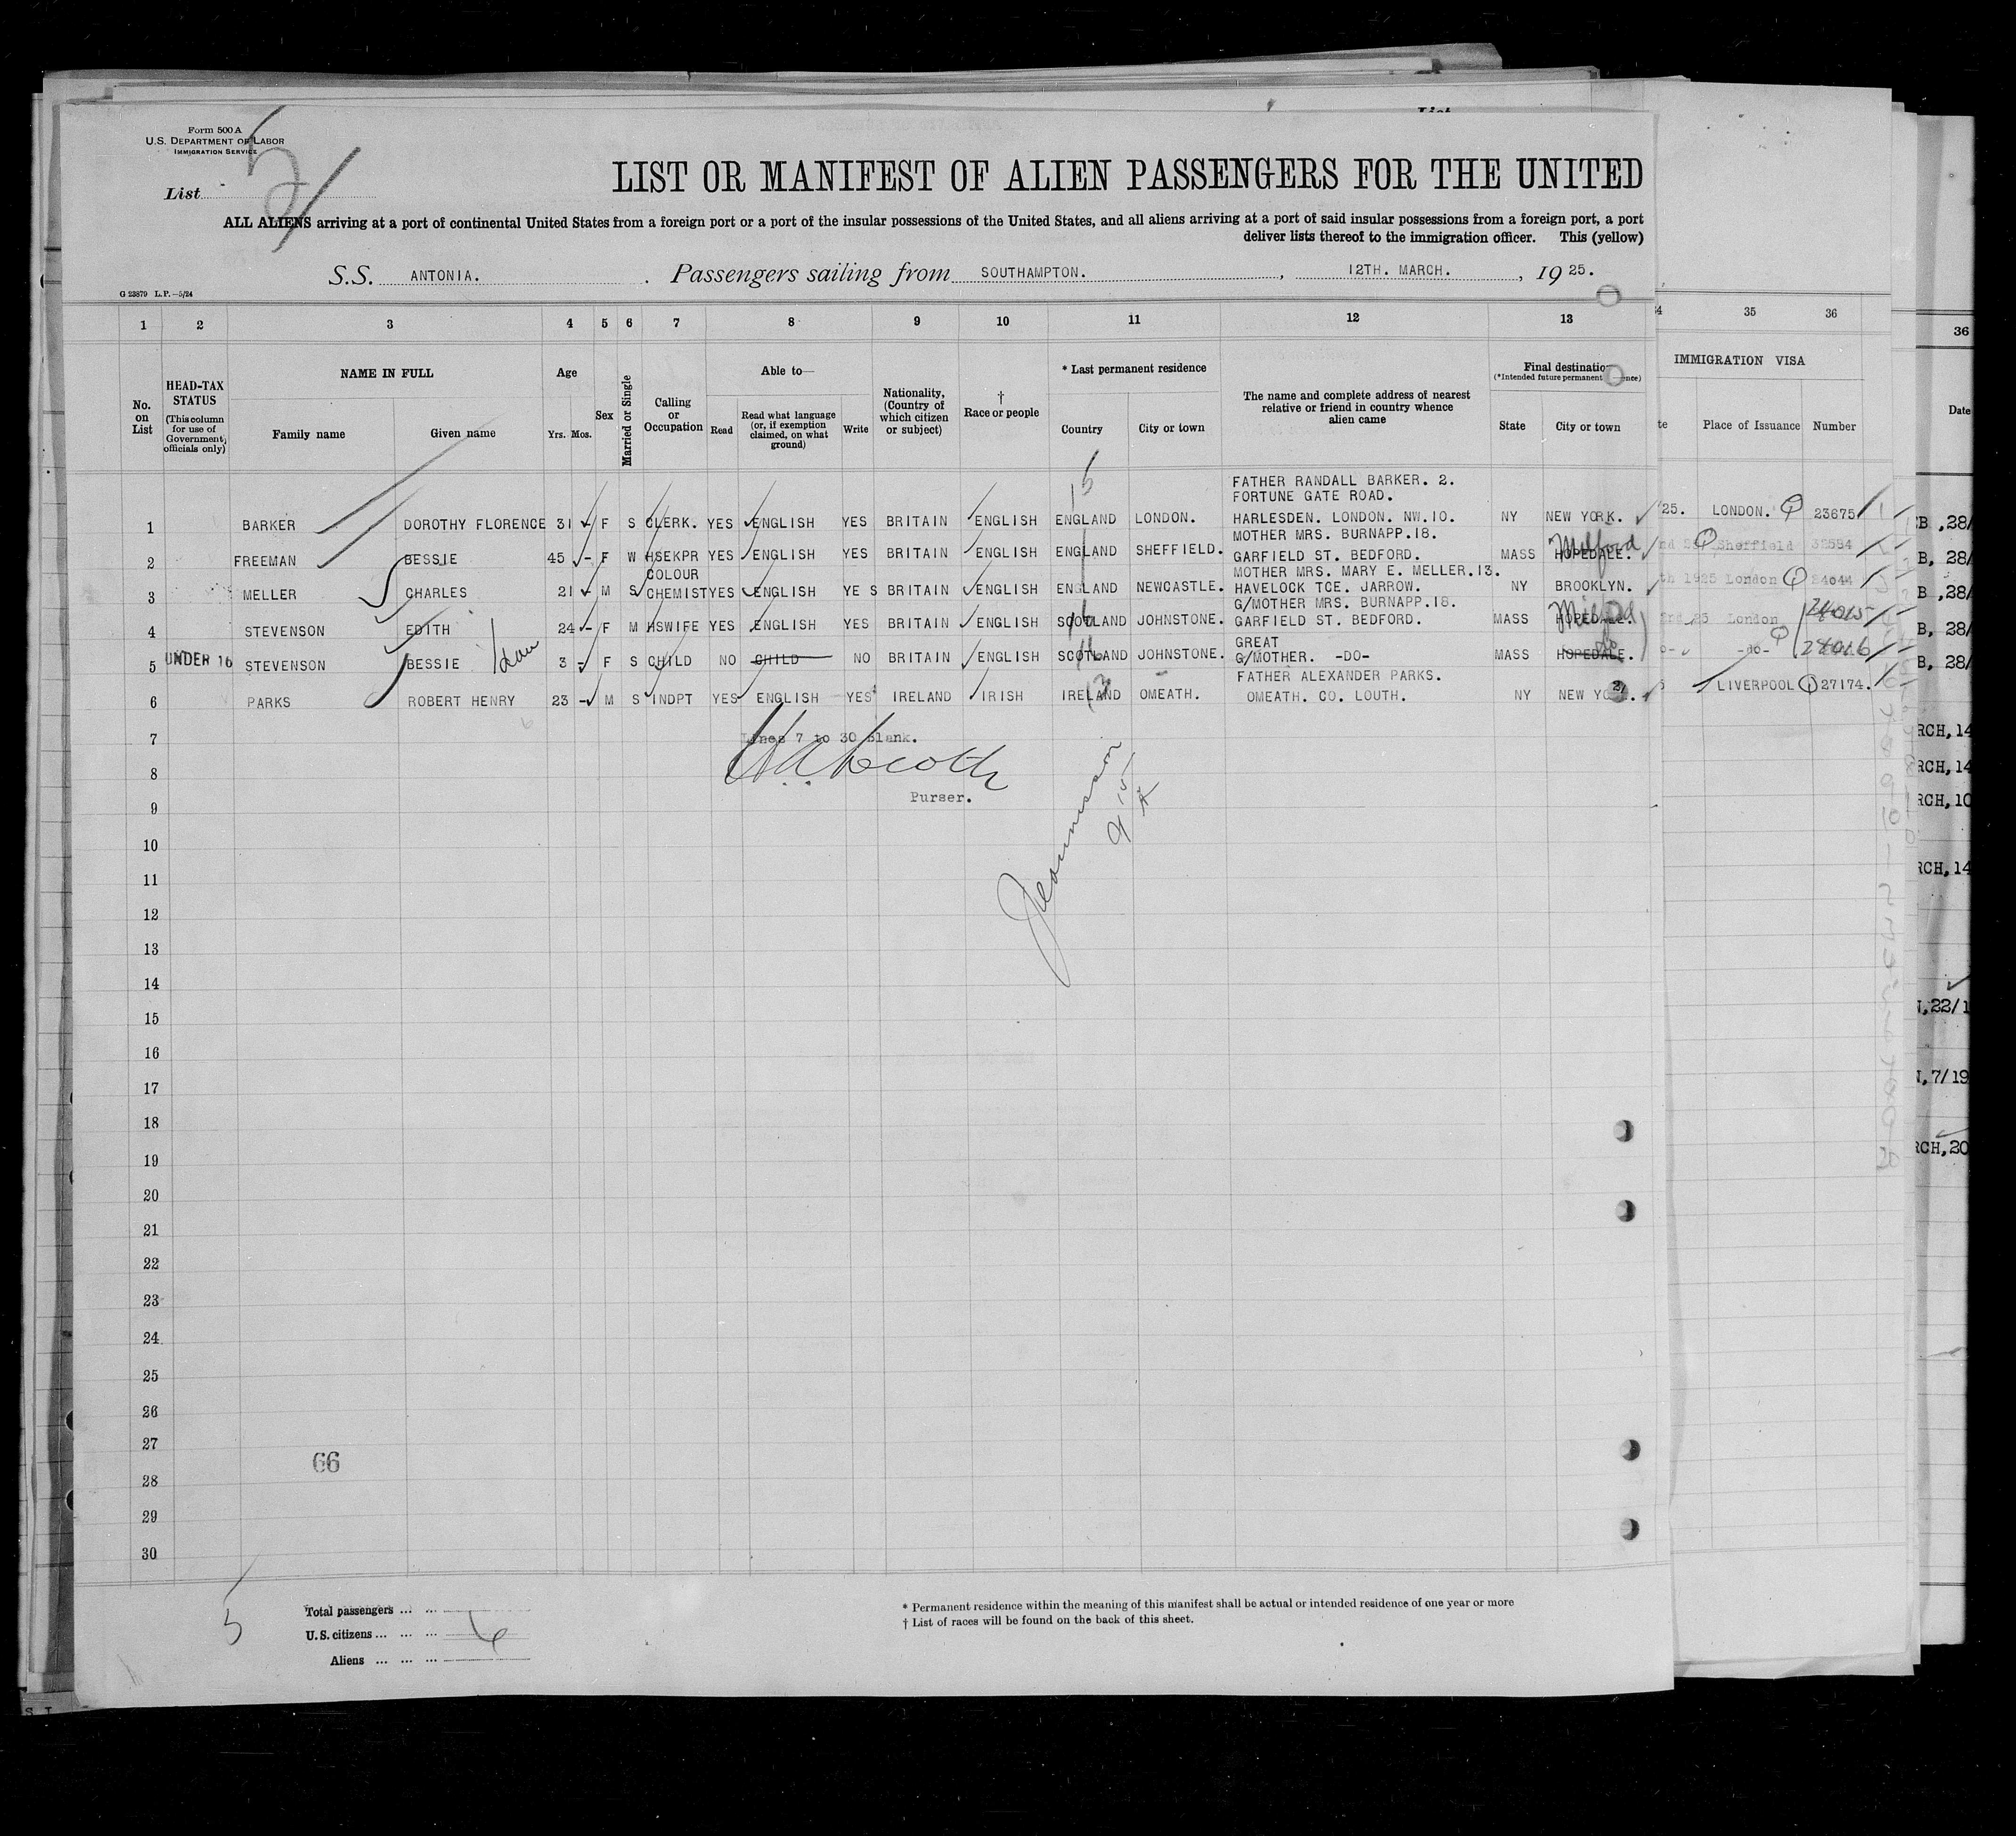 Form 500 A
U.S. DEPARTMENT OF LABOR
IMMIGRATION SERVICE
List 5
LIST OR MANIFEST OF ALIEN PASSENGERS FOR THE UNITED
ALL ALIENS arriving at a port of continental United States from a foreign port or a port of the insular possessions of the United States, and all aliens arriving at a port of said insular possessions from a foreign port, a port
deliver lists thereof to the immigration officer. This (yellow)
S.S. ANTONIA. Passengers sailing from SOUTHAMPTON. , 12TH. MARCH. , 1925.
G 23879 L.P.—5/24
1 2 3 4 5 6 7 8 9 10 11 12 13 35 36
No. on List
HEAD-TAX STATUS
(This column for use of Government officials only)
NAME IN FULL
Family name Given name
Age
Yrs. Mos.
Sex
Married or Single
Calling or Occupation
Able to—
Read
Read what language (or, if exemption claimed, on what ground)
Write
Nationality, (Country of which citizen or subject)
† Race or people
* Last permanent residence
Country City or town
The name and complete address of nearest relative or friend in country whence alien came
Final destination
(*Intended future permanent
State City or town
IMMIGRATION VISA
Place of Issuance Number
36
Date
FATHER RANDALL BARKER. 2.
FORTUNE GATE ROAD.
1 BARKER DOROTHY FLORENCE 31 - F S CLERK. YES ENGLISH YES BRITAIN ENGLISH ENGLAND LONDON. HARLESDEN. LONDON. NW.10. NY NEW YORK. 25. LONDON. 23675
MOTHER MRS. BURNAPP.18.
2 FREEMAN BESSIE 45 - F W HSEKPR YES ENGLISH YES BRITAIN ENGLISH ENGLAND SHEFFIELD. GARFIELD ST. BEDFORD. MASS HOPEDALE. Milford Sheffield
COLOUR MOTHER MRS. MARY E. MELLER.13.
3 MELLER CHARLES 21 - M S CHEMIST YES ENGLISH YES BRITAIN ENGLISH ENGLAND NEWCASTLE. HAVELOCK TCE. JARROW. NY BROOKLYN. th 1925 London 24044
G/MOTHER MRS. BURNAPP.18.
4 STEVENSON EDITH 24 - F M HSWIFE YES ENGLISH YES BRITAIN ENGLISH SCOTLAND JOHNSTONE. GARFIELD ST. BEDFORD. MASS HOPEDALE. Milford 25 London 24015
GREAT
5 UNDER 16 STEVENSON BESSIE 3 - F S CHILD NO CHILD NO BRITAIN ENGLISH SCOTLAND JOHNSTONE. G/MOTHER. -DO- MASS HOPEDALE. do -do- 24016
FATHER ALEXANDER PARKS.
6 PARKS ROBERT HENRY 23 - M S INDPT YES ENGLISH YES IRELAND IRISH IRELAND OMEATH. OMEATH. CO. LOUTH. NY NEW YO LIVERPOOL 27174.
7 Lines 7 to 30 Blank.
8
Purser.
9
10
11
12
13
14
15
16
17
18
19
20
21
22
23
24
25
26
27
66
28
29
30
5
Total passengers ... ...
U.S. citizens ... ... ... 6
Aliens ... ... ...
* Permanent residence within the meaning of this manifest shall be actual or intended residence of one year or more
† List of races will be found on the back of this sheet.
B ,28/
B, 28/
B ,28/
B, 28/
B, 28/
RCH, 14
RCH, 14
RCH, 10
RCH, 14
,22/1
,7/19
RCH, 20